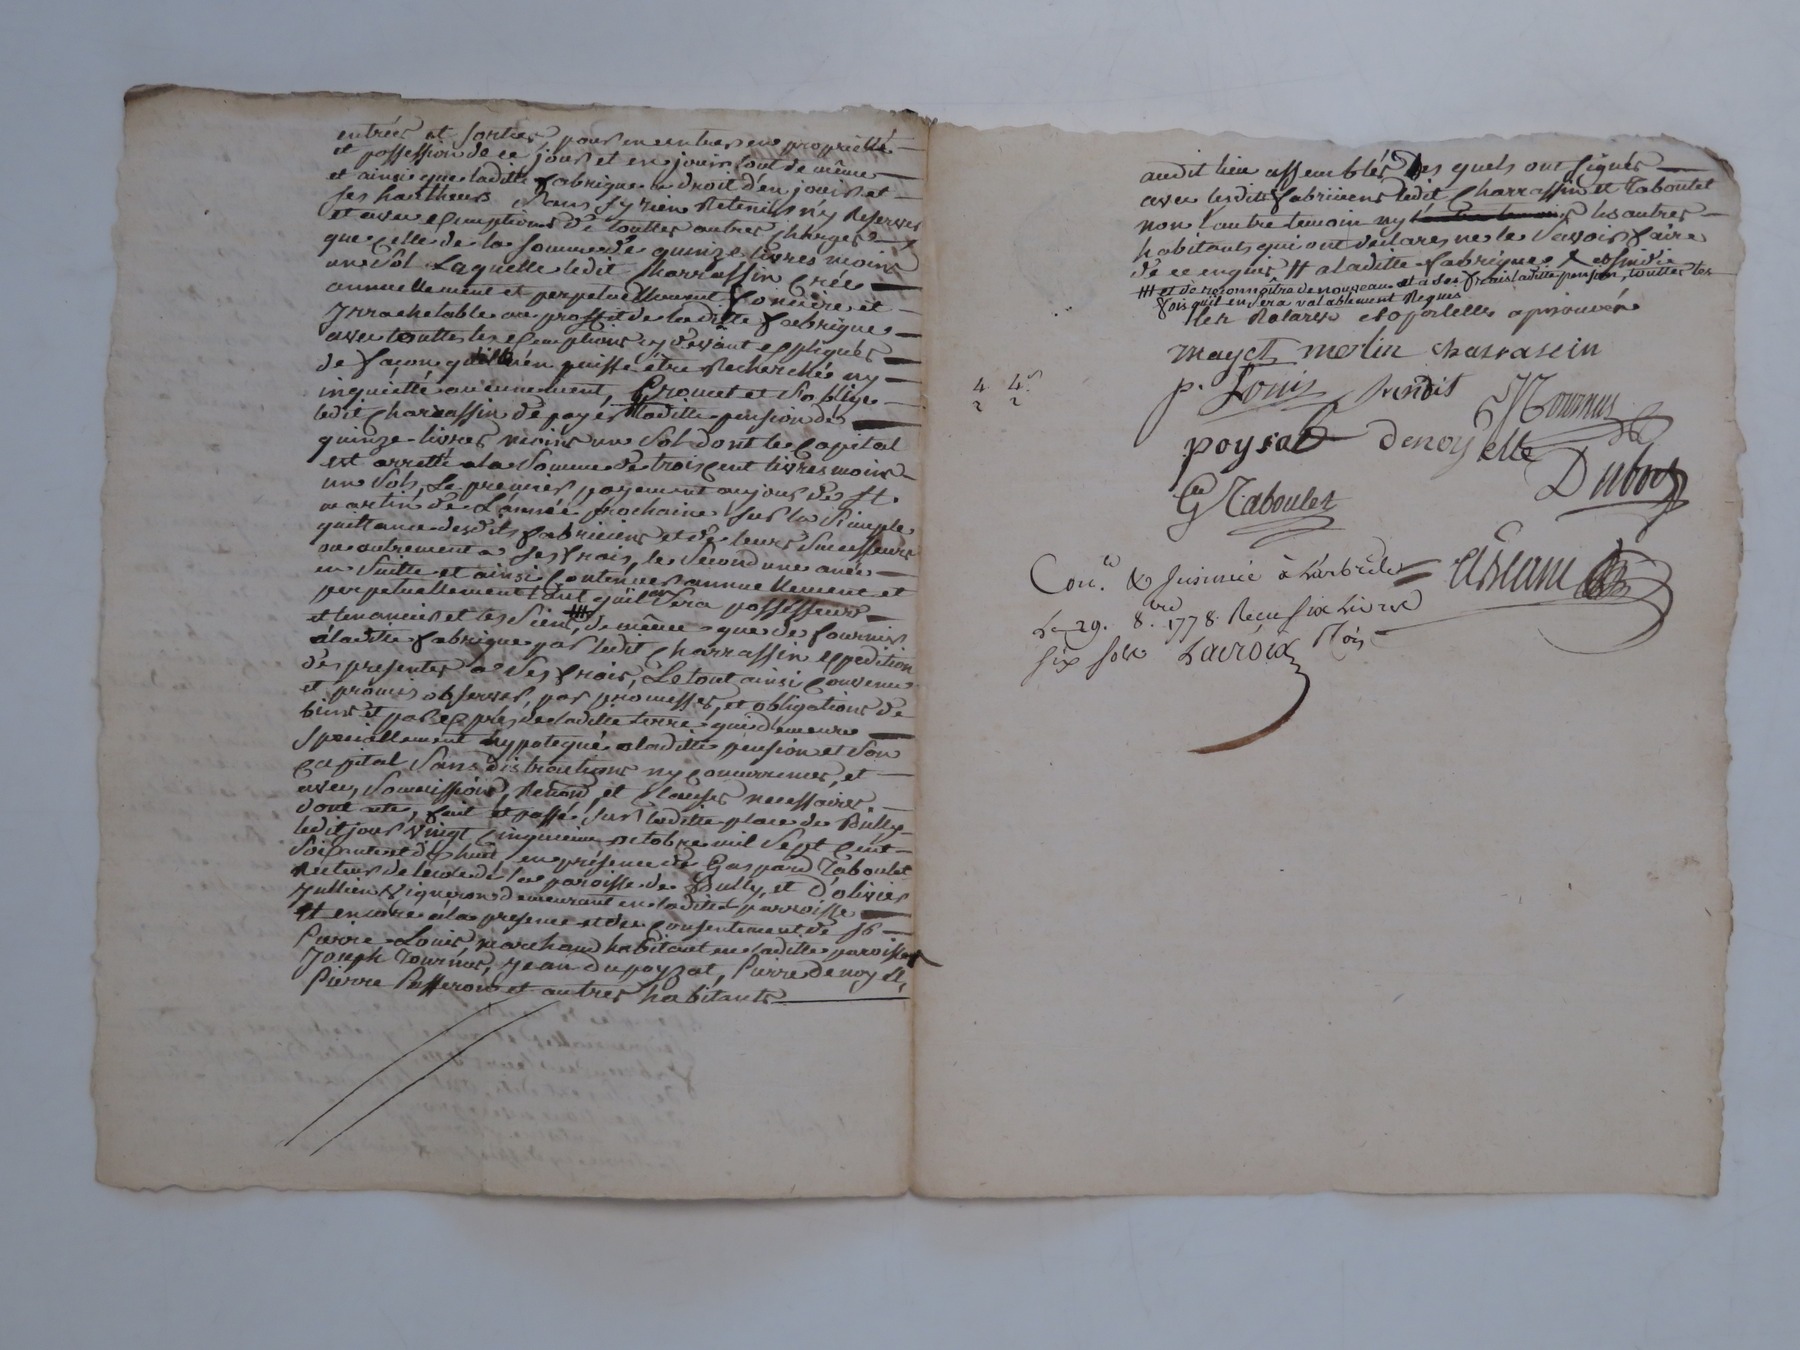 entrées et sorties, pour en entrer en propriété
et possession de ce jour et en jouir tout de même
et ainsi que laditte fabrique a droit d'en jouir et
ses hautheurs sans sy rien retenir n'y reserver
et avec exemptions de touttes autres charges
que celle de la somme de quinze livres moins
un sol laquelle ledit Charrassin crée
annuellement et perpetuellement fonciere et
yrrachetable au proffit de laditte fabrique
avec touttes les exemptions cy devant expliqués
de façon qu'elle n'en puisse être recherchée ny
inquietté aucunement, Promet et s'oblige
ledit Charrassin de payer laditte pension de
quinze livres moins un sol dont le Capital
est arretté a la somme de trois cent livres moins
un sols, le premier payement au jour de St.
martin de L'année prochaine sur la simple
quittance desdits fabriciens et de leurs successeurs
ou autrement a ses frais, le second une année
en suitte et ainsi Continuer annuellement et
perpetuellement tant qu'il sera possesseur
et tenancier et les siens, # de même que de fournir
a laditte fabrique par ledit Charrassin expedition
des presentes a ses frais, Le tout ainsi convenu
et promis observer, par promesses, et obligations de
biens et par exprès de laditte terre qui demeure
specialement hypotequé a laditte pension et son
Capital sans distractions ny concurrences, et
avec, soumissions, Renond. et Clauses necessaires.
dont acte, fait et passé, sur laditte place de Bully
ledit jour vingt Cinquieme octobre mil sept Cent
soixante et dix huit en présence de Gaspard Taboulet
Recteur de lecole de la paroisse de Bully, et D'olivier
Jullien vigneron demeurant en laditte parroisse
# encore a la presence et du Consentement de sr
Pierre Louis, marchand habitant en laditte paroisse
Joseph Tournus, Jean Dupoyzat, Pierre Denoyel,
Pierre Pesseron et autres habitants
audit lieu assemblés Les quels ont signés
avec lesdits fabriciens ledit Charrassin et Taboulet
non l'autre temoin ny les autres
habitants qui ont declarés ne le savoir faire
de ce enquis # a laditte fabrique &
# et de reconnoître de nouveau et a ses frais laditte pension, touttes les
fois qu'il en sera valablement Requis
les Ratures et apostelles aprouvés
mayet merlin charrasein
p. Louis
JTournus
poysat denoyelle
Dubost
G Taboulet
Con.le & Insinué à Larbrêle
Le 29. 8.bre 1778. Reçu six Livres
six sols Lacroix
4 4
2 2